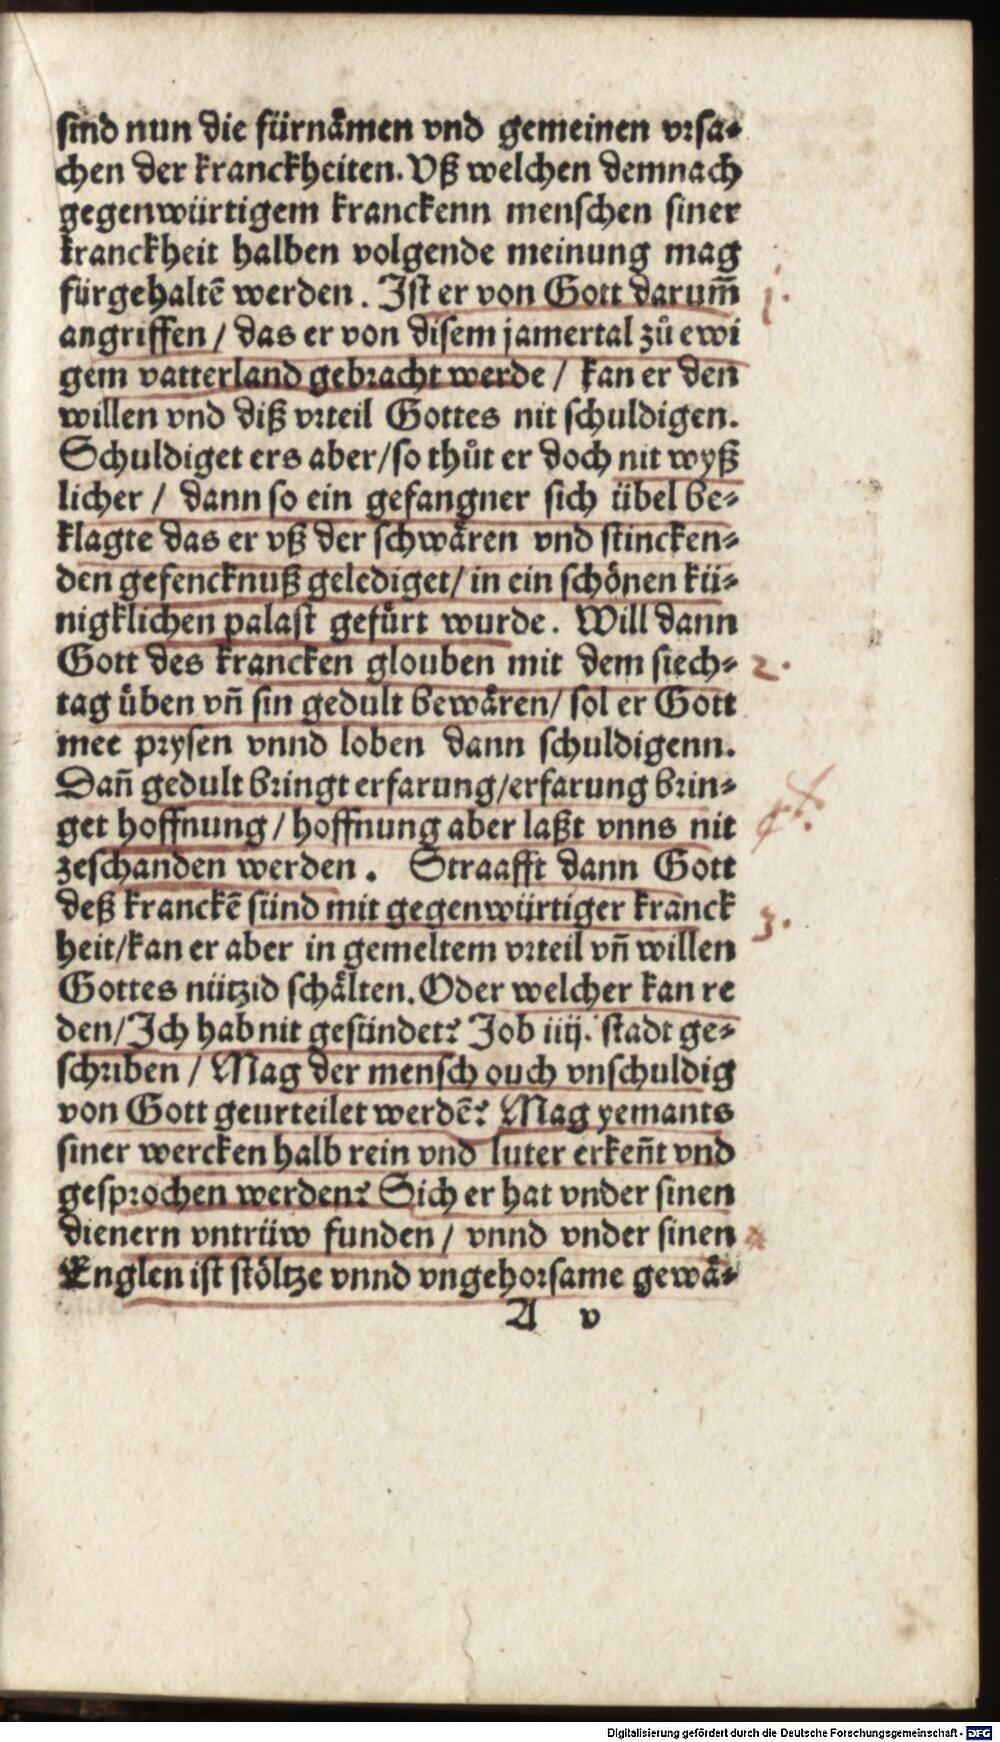 sind nun die fürnaͤmen vnd gemeinen vrsa-
chen der kranckheiten. Vß welchen demnach
gegenwürtigem kranckenn menschen siner
kranckheit halben volgende meinung mag
fürgehaltē werden. Ist er von Gott darum̄
1.
angriffen / das er von disem jamertal zů ewi
gem vatterland gebracht werde / kan er den
willen vnd diß vrteil Gottes nit schuldigen.
Schuldiget ers aber/so thůt er doch nit wyß
licher / dann so ein gefangner sich übel be-
klagte das er vß der schwaͤren vnd stincken-
den gefencknuß gelediget/ in ein schoͤnen kü-
nigklichen palast gefuͤrt wurde. Will dann
Gott des krancken glouben mit dem siech-
2.
tag uͤben vn̄ sin gedult bewaͤren/ sol er Gott
mee prysen vnnd loben dann schuldigenn.
Dan̄ gedult bringt erfarung/erfarung brin-
get hoffnung / hoffnung aber laßt vnns nit
zeschanden werden. Straafft dann Gott
deß kranckē sünd mit gegenwürtiger kranck
3.
heit/kan er aber in gemeltem vrteil vn̄ willen
Gottes nützid schaͤlten. Oder welcher kan re
den/Ich hab nit gesündet? Job iiij. stadt ge-
schriben / Mag der mensch ouch vnschuldig
von Gott geurteilet werdē? Mag yemants
siner wercken halb rein vnd luter erken̄t vnd
gesprochen werden? Sich er hat vnder sinen
dienern vntrüw funden / vnnd vnder sinen
Englen ist stöltze vnnd vngehorsame gewaͤ-
A v
Digitalisierung gefördert durch die Deutsche Forschungsgemeinschaft - DFG